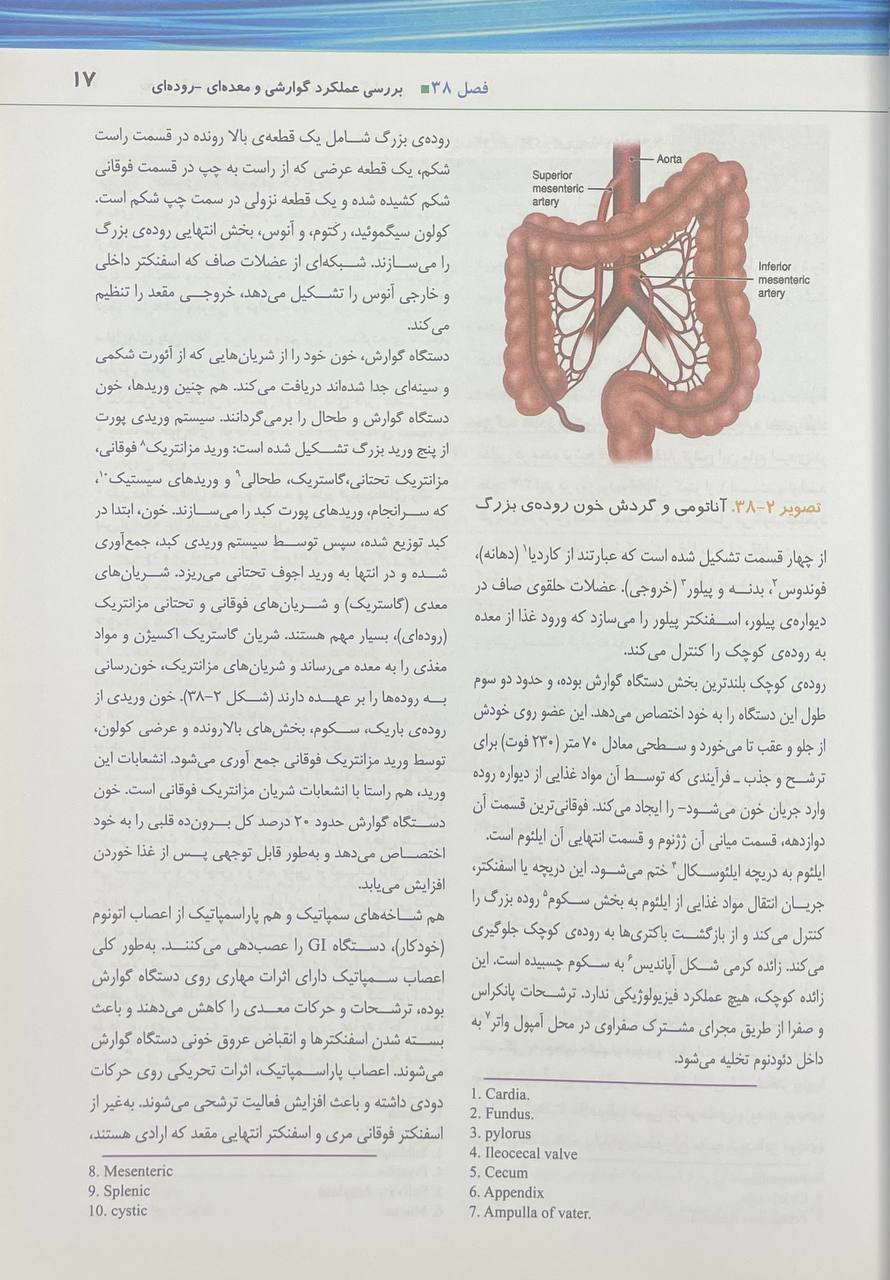 فصل ۳۸ ■ بررسی عملکرد گوارشی و معده‌ای -روده‌ای
۱۷
Aorta
Superior
mesenteric
artery
Inferior
mesenteric
artery
تصویر ۲-۳۸. آناتومی و گردش خون روده‌ی بزرگ
از چهار قسمت تشکیل شده است که عبارتند از کاردیا۱ (دهانه)،
فوندوس۲، بدنه و پیلور۳ (خروجی). عضلات حلقوی صاف در
دیواره‌ی پیلور، اسفنکتر پیلور را می‌سازد که ورود غذا از معده
به روده‌ی کوچک را کنترل می‌کند.
روده‌ی کوچک بلندترین بخش دستگاه گوارش بوده، و حدود دو سوم
طول این دستگاه را به خود اختصاص می‌دهد. این عضو روی خودش
از جلو و عقب تا می‌خورد و سطحی معادل ۷۰ متر (۲۳۰ فوت) برای
ترشح و جذب ـ فرآیندی که توسط آن مواد غذایی از دیواره روده
وارد جریان خون می‌شود- را ایجاد می‌کند. فوقانی‌ترین قسمت آن
دوازدهه، قسمت میانی آن ژژنوم و قسمت انتهایی آن ایلئوم است.
ایلئوم به دریچه ایلئوسکال۴ ختم می‌شود. این دریچه یا اسفنکتر،
جریان انتقال مواد غذایی از ایلئوم به بخش سکوم۵ روده بزرگ را
کنترل می‌کند و از بازگشت باکتری‌ها به روده‌ی کوچک جلوگیری
می‌کند. زائده کرمی شکل آپاندیس۶ به سکوم چسبیده است. این
زائده کوچک، هیچ عملکرد فیزیولوژیکی ندارد. ترشحات پانکراس
و صفرا از طریق مجرای مشترک صفراوی در محل آمپول واتر۷ به
داخل دئودنوم تخلیه می‌شود.
1. Cardia.
2. Fundus.
3. pylorus
4. Ileocecal valve
5. Cecum
6. Appendix
7. Ampulla of vater.
روده‌ی بزرگ شامل یک قطعه‌ی بالا رونده در قسمت راست
شکم، یک قطعه عرضی که از راست به چپ در قسمت فوقانی
شکم کشیده شده و یک قطعه نزولی در سمت چپ شکم است.
کولون سیگموئید، رکتوم، و آنوس، بخش انتهایی روده‌ی بزرگ
را می‌سازند. شبکه‌ای از عضلات صاف که اسفنکتر داخلی
و خارجی آنوس را تشکیل می‌دهد، خروجی مقعد را تنظیم
می‌کند.
دستگاه گوارش، خون خود را از شریان‌هایی که از آئورت شکمی
و سینه‌ای جدا شده‌اند دریافت می‌کند. هم چنین وریدها، خون
دستگاه گوارش و طحال را برمی‌گردانند. سیستم وریدی پورت
از پنج ورید بزرگ تشکیل شده است: ورید مزانتریک۸ فوقانی،
مزانتریک تحتانی،گاستریک، طحالی۹ و وریدهای سیستیک۱۰،
که سرانجام، وریدهای پورت کبد را می‌سازند. خون، ابتدا در
کبد توزیع شده، سپس توسط سیستم وریدی کبد، جمع‌آوری
شده و در انتها به ورید اجوف تحتانی می‌ریزد. شریان‌های
معدی (گاستریک) و شریان‌های فوقانی و تحتانی مزانتریک
(روده‌ای)، بسیار مهم هستند. شریان گاستریک اکسیژن و مواد
مغذی را به معده می‌رساند و شریان‌های مزانتریک، خون‌رسانی
به روده‌ها را بر عهده دارند (شکل ۲-۳۸). خون وریدی از
روده‌ی باریک، سکوم، بخش‌های بالارونده و عرضی کولون،
توسط ورید مزانتریک فوقانی جمع آوری می‌شود. انشعابات این
ورید، هم راستا با انشعابات شریان مزانتریک فوقانی است. خون
دستگاه گوارش حدود ۲۰ درصد کل برون‌ده قلبی را به خود
اختصاص می‌دهد و به‌طور قابل توجهی پس از غذا خوردن
افزایش می‌یابد.
هم شاخه‌های سمپاتیک و هم پاراسمپاتیک از اعصاب اتونوم
(خودکار)، دستگاه GI را عصب‌دهی می‌کنند. به‌طور کلی
اعصاب سمپاتیک دارای اثرات مهاری روی دستگاه گوارش
بوده، ترشحات و حرکات معدی را کاهش می‌دهند و باعث
بسته شدن اسفنکترها و انقباض عروق خونی دستگاه گوارش
می‌شوند. اعصاب پاراسمپاتیک، اثرات تحریکی روی حرکات
دودی داشته و باعث افزایش فعالیت ترشحی می‌شوند. به‌غیر از
اسفنکتر فوقانی مری و اسفنکتر انتهایی مقعد که ارادی هستند،
8. Mesenteric
9. Splenic
10. cystic